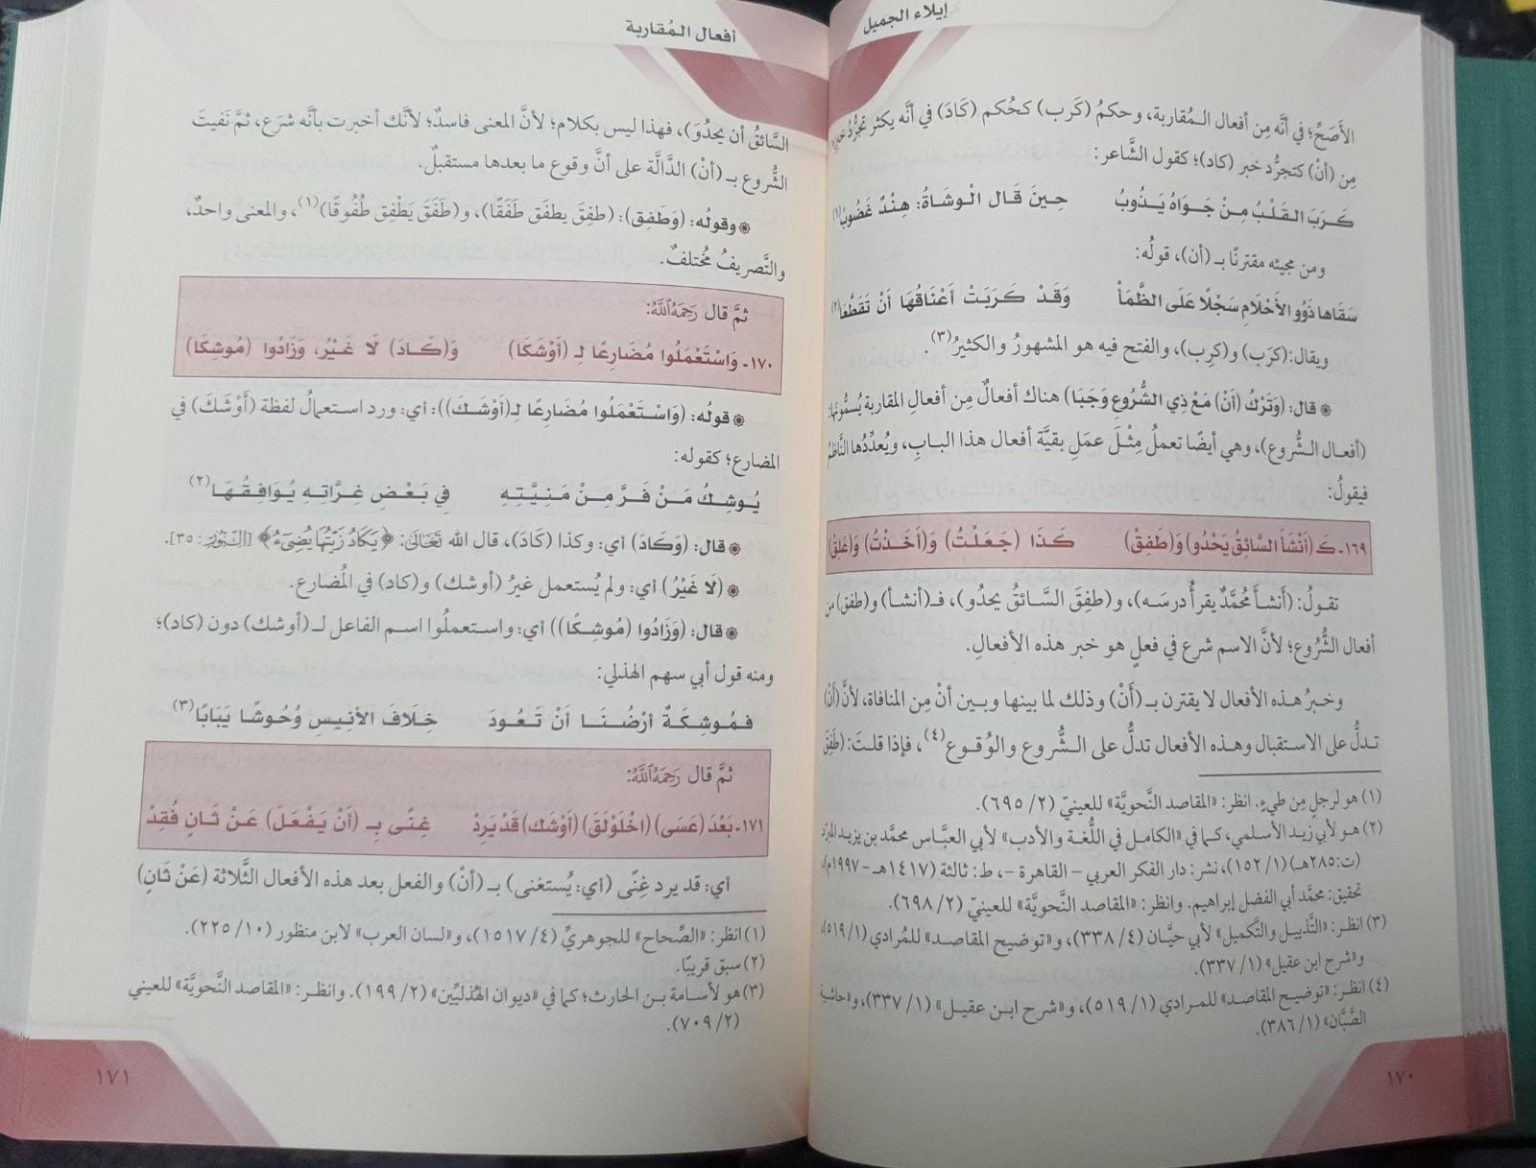 إيلاء الجميل
الأَصَحِّ؛ في أنَّه مِن أفعال المُقاربة، وحكمُ (كَرَب) كحُكم (كَادَ) في أنَّه يكثر تجرُّدُ
مِن (أنْ) كتجرُّد خبر (كاد)؛ كقول الشَّاعر:
كَرَبَ القَلْبُ مِنْ جَوَاهُ يَذُوبُ حِينَ قَال الْوشَاةُ: هِنْدٌ غَضُوبُ(١)
ومن مجيئه مقترنًا بـ (أن)، قولُه:
سَقَاها ذَوُو الأَحْلَامِ سَجْلًا عَلَى الظَّمَأْ وَقَدْ كَرَبَتْ أَعْنَاقُهَا أَنْ تَقَطَّعَا(٢)
ويقال:(كرَب) و(كرِب)، والفتح فيه هو المشهورُ والكثيرُ(٣).
قال: (وَتَرْكُ (أَنْ) مَعْ ذِي الشُّرُوعِ وَجَبَا) هناك أفعالٌ مِن أفعالِ المقاربة يُسمُّونَها:
(أفعال الشُّروع)، وهي أيضًا تعملُ مِثْلَ عمَلِ بقيَّة أفعال هذا البابِ، ويُعدِّدُها النَّاظمُ
فيقولُ:
١٦٩- كَـ (أَنْشَأَ السَّائِقُ يَحْدُو) وَ(طَفِقْ) كَذَا (جَعَلْتُ) وَ(أَخَذْتُ) وَ(عَلِقْ)
تقولُ: (أَنشأَ مُحمَّدٌ يقرأُ درسَه)، و(طفِقَ السَّائقُ يحدُو)، فـ(أنشأ) و(طفق) من
أفعال الشُّرُوع؛ لأنَّ الاسم شرع في فعلٍ هو خبر هذه الأفعالِ.
وخبرُ هذه الأفعال لا يقترن بـ (أَنْ) وذلك لما بينها وبين أنْ مِن المنافاة، لأنَّ (أَنْ)
تدلُّ على الاستقبال وهذه الأفعال تدلُّ على الشُّروع والوُقوع(٤)، فإذا قلتَ: (طَفِقَ
(١) هو لرجلٍ مِن طيءٍ. انظر: «المقاصد النَّحويَّة» للعينيّ (٢/ ٦٩٥).
(٢) هو لأبي زيد الأسلمي، كما في «الكامل في اللُّغة والأدب» لأبي العبَّاس محمَّد بن يزيد المبرّد
(ت:٢٨٥هـ) (١/ ١٥٢)، نشر: دار الفكر العربي - القاهرة -، ط: ثالثة (١٤١٧هـ -١٩٩٧م)،
تحقيق: محمَّد أبي الفضل إبراهيم. وانظر: «المقاصد النَّحويَّة» للعينيّ (٢/ ٦٩٨).
(٣) انظر: «التَّذييل والتَّكميل» لأبي حيَّان (٤/ ٣٣٨)، و«توضيح المقاصد» للمُرادي (١/ ٥١٩)،
و«شرح ابن عقيل» (١/ ٣٣٧).
(٤) انظر: «توضيح المقاصد» للمرادي (١/ ٥١٩)، و«شرح ابن عقيل» (١/ ٣٣٧)، و«حاشية
الصَّبَّان» (١/ ٣٨٦).
١٧٠
أفعال المُقاربة
السَّائقُ أن يحدُوَ)، فهذا ليس بكلام؛ لأنَّ المعنى فاسدٌ؛ لأنَّك أخبرت بأنَّه شرَع، ثمَّ نَفيتَ
الشُّروع بـ (أنْ) الدَّالَّة على أنَّ وقوع ما بعدها مستقبلٌ.
وقولُه: (وَطَفِق): (طفِق يطفَق طَفَقًا)، و(طَفَقَ يَطْفِق طُفُوقًا)(١)، والمعنى واحدٌ،
والتَّصريفُ مُختلفٌ.
ثمَّ قال رَحِمَهُ ٱللَّهُ:
١٧٠- وَاسْتَعْمَلُوا مُضَارِعًا لِـ (أَوْشَكَا) وَ(كَادَ) لَا غَيْرُ، وَزَادُوا (مُوشِكَا)
قولُه: (وَاسْتَعْمَلُوا مُضَارِعًا لِـ(أَوْشَكَ)): أي: ورد استعمالُ لفظة (أَوْشَكَ) في
المضارع؛ كقوله:
يُوشِكُ مَنْ فَرَّ مِنْ مَنِيَّتِهِ فِي بَعْضِ غِرَّاتِهِ يُوَافِقُهَا(٢)
قال: (وَكَادَ) أي: وكذا (كَادَ)، قال الله تَعَالَىٰ: ﴿يَكَادُ زَيْتُهَا يُضِيٓءُ﴾ [النُّور: ٣٥].
(لَا غَيْرُ) أي: ولم يُستعمل غيرُ (أوشك) و(كاد) في المُضارع.
قال: (وَزَادُوا (مُوشِكًا)) أي: واستعملُوا اسم الفاعل لـ (أوشك) دون (كاد)؛
ومنه قول أبي سهم الهذلي:
فمُوشِكَةٌ أرْضُنَا أَنْ تَعُودَ خِلَافَ الأنِيسِ وُحُوشًا يَبَابًا(٣)
ثمَّ قال رَحِمَهُ ٱللَّهُ:
١٧١-بَعْدَ (عَسَى) (اخْلَوْلَقَ) (أَوْشَك) قَدْ يَرِدْ غِنًى بِـ (أَنْ يَفْعَلَ) عَنْ ثَانٍ فُقِدْ
أي: قد يرد غِنًى (أي: يُستغنى) بـ (أنْ) والفعل بعد هذه الأفعال الثَّلاثة (عَنْ ثَانٍ)
(١) انظر: «الصِّحاح» للجوهريِّ (٤/ ١٥١٧)، و«لسان العرب» لابن منظور (١٠/ ٢٢٥).
(٢) سبق قريبًا.
(٣) هو لأسامة بن الحارث؛ كما في «ديوان الهُذليِّين» (٢/ ١٩٩). وانظر: «المقاصد النَّحويَّة» للعيني
(٢/ ٧٠٩).
١٧١